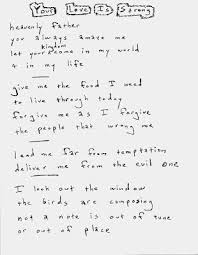 Your Love Is Strong
heavenly father
you always amaze me
let your kingdom come in my world
& in my life
give me the food I need
to live through today
forgive me as I forgive
the people that wrong me
lead me far from temptation
deliver me from the evil one
I look out the window
the birds are composing
not a note is out of tune
or out of place